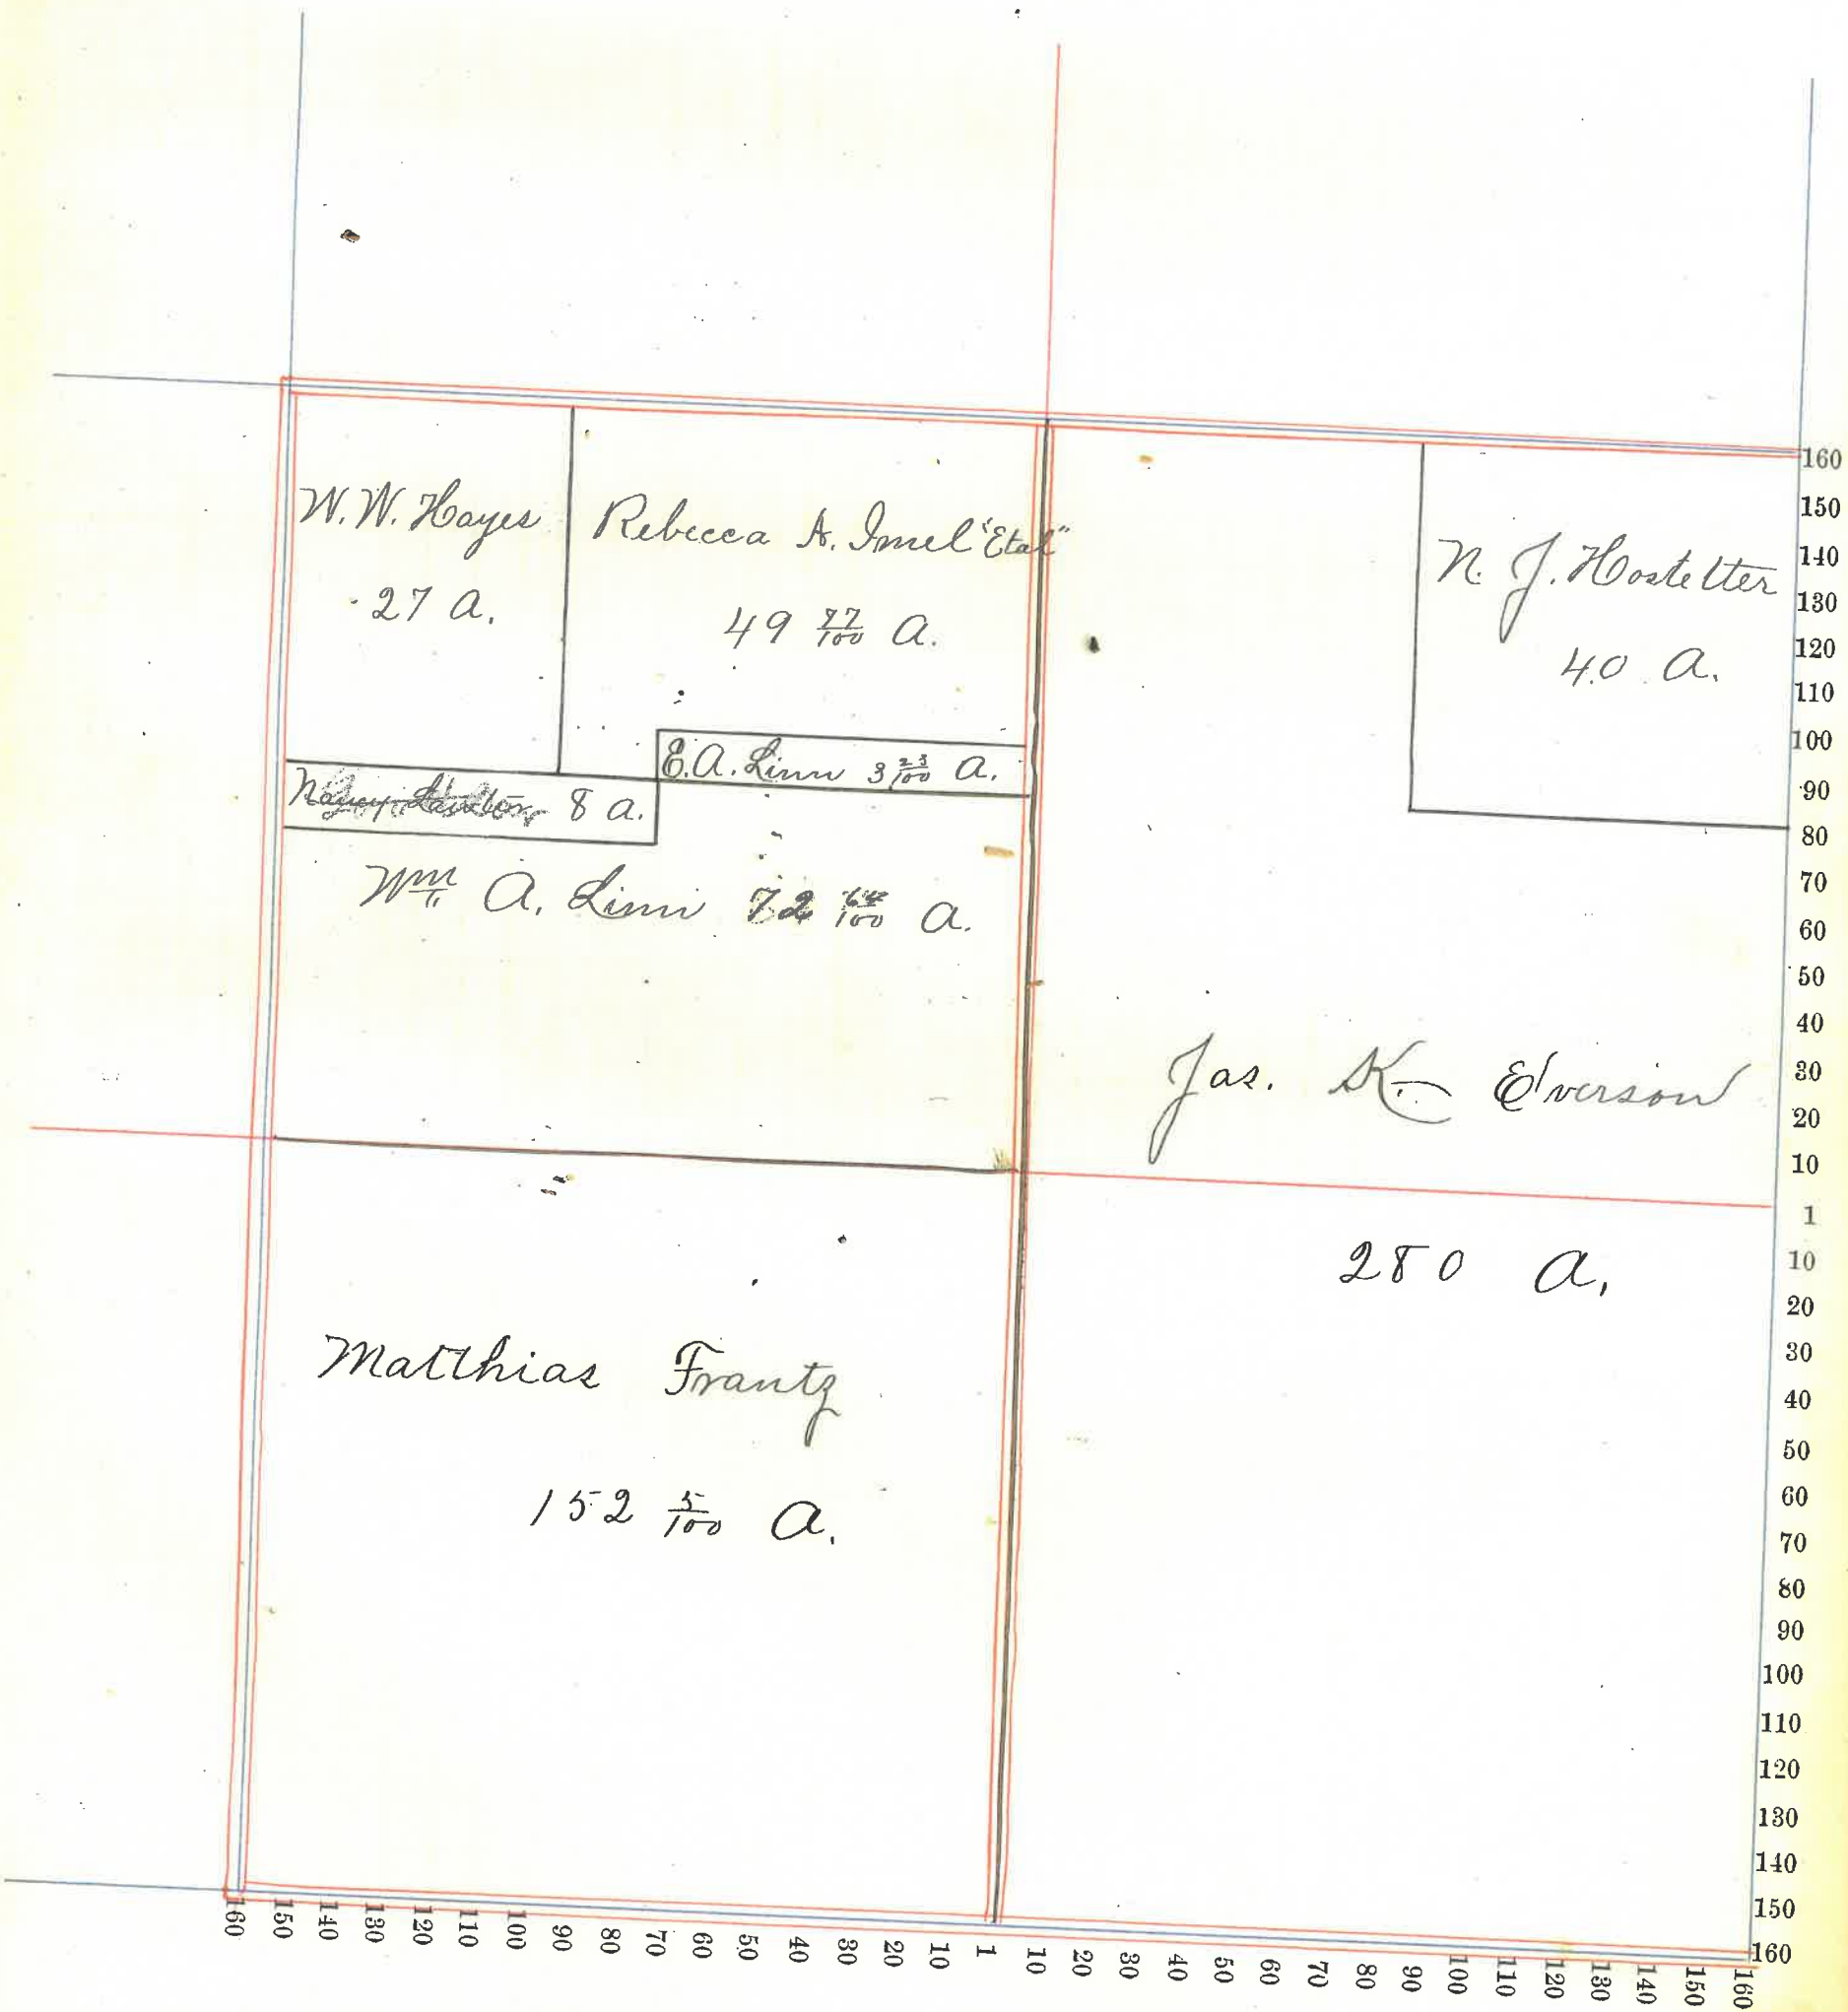 W. W. Hayes
27 A.
Rebecca A. Imel "Etal"
49 77/100 A.
N. J. Hostetter
40 A.
E. A. Linn 3 23/100 A.
Nancy 8 A.
Wm. A. Linn 72 64/100 A.
Jas. K. Everson
280 A.
Matthias Frantz
152 5/100 A.
160
150
140
130
120
110
100
90
80
70
60
50
40
30
20
10
1
10
20
30
40
50
60
70
80
90
100
110
120
130
140
150
160
160 150 140 130 120 110 100 90 80 70 60 50 40 30 20 10 1 10 20 30 40 50 60 70 80 90 100 110 120 130 140 150 160